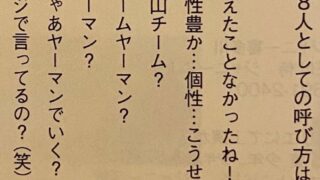 ８人としての呼び方は
えたことなかったね！
性豊か…個性…こうせ
山チーム？
ームヤーマン？
ーマン？
ゃあヤーマンでいく？
ジで言ってるの？（笑）